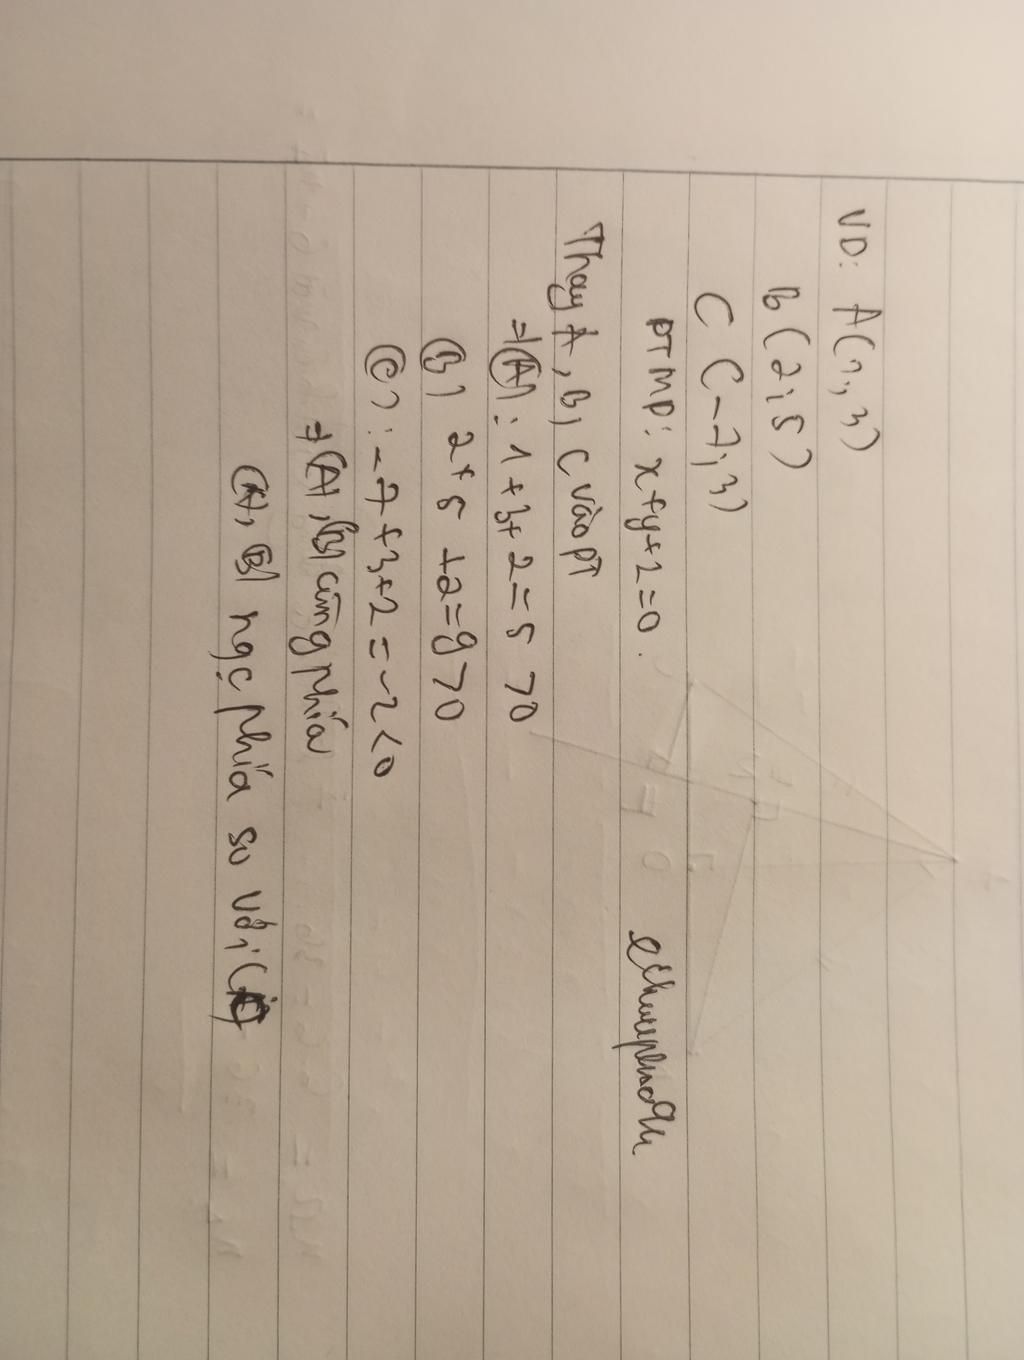 VD: A(1; 3)
B(2; 5)
C(-7; 3)
PTMP: x+y+2=0.
Thay A, B, C vào PT
⇒(A): 1+3+2=5 >0
(B) 2+5+2=9>0
(C): -7+3+2=-2<0
⇒(A), (B) cùng phía
(A), (B) ngc phía so với (C)